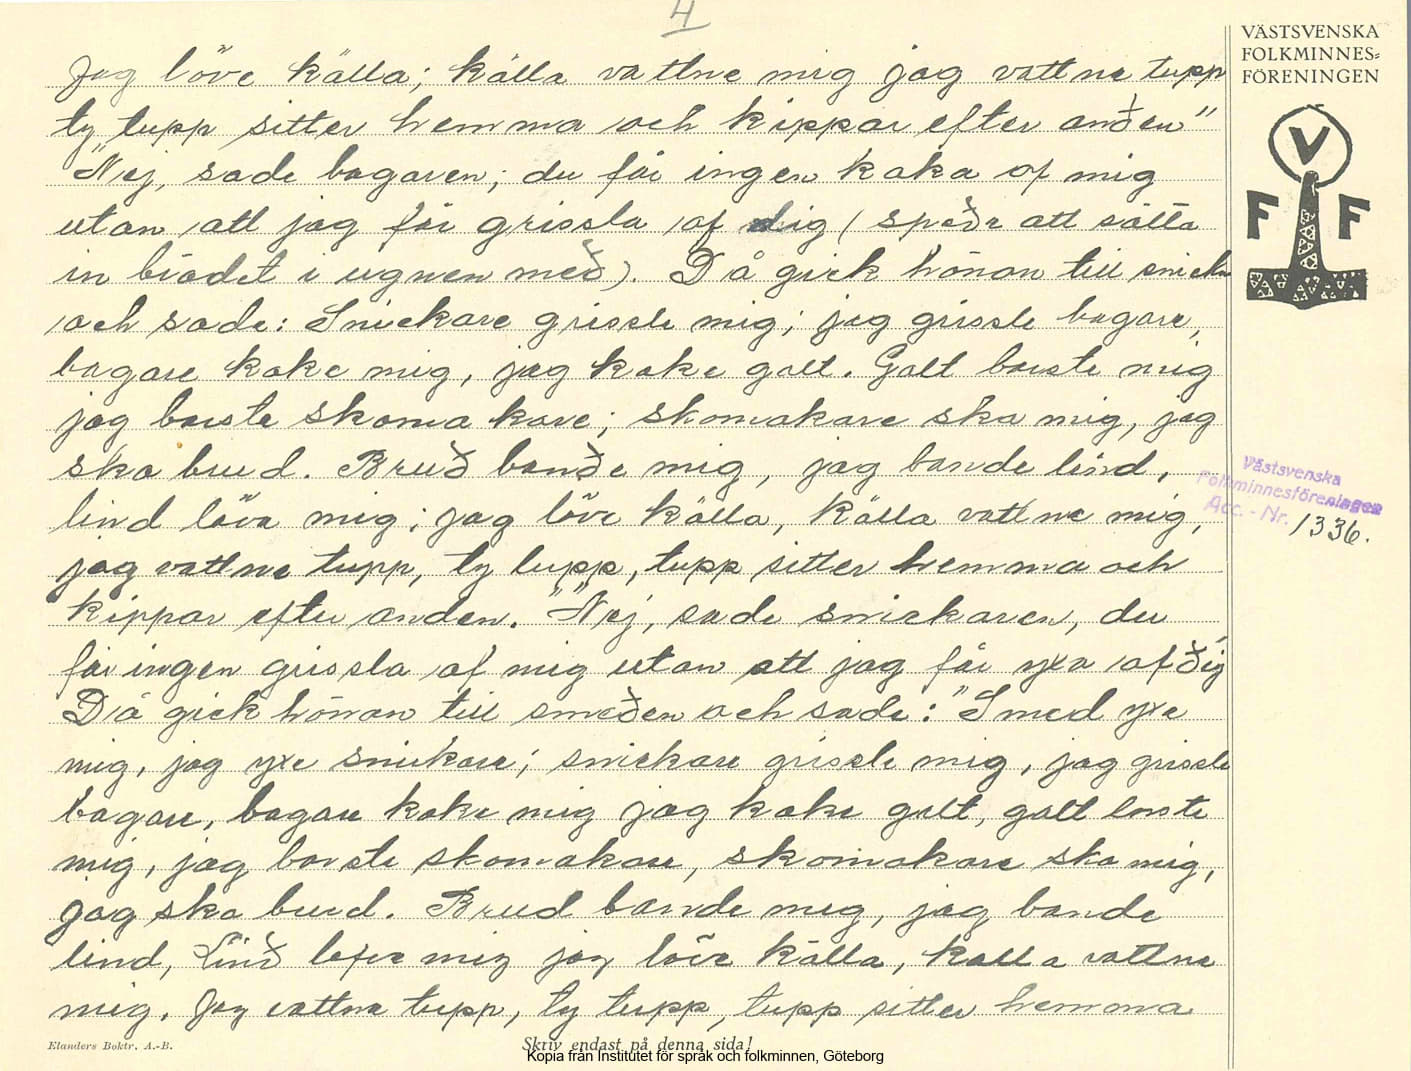 4
VÄSTSVENSKA
FOLKMINNES=
FÖRENINGEN
V
F F
Jag löve källa; källa vattne mig jag vattne tupp
ty tupp sitter hemma och kippar efter anden"
"Nej, sade bagaren; du får ingen kaka af mig
utan att jag får grissla af dig (spade att sätta
in brödet i ugnen med). Då gick hönan till snick
och sade: Snickare grissle mig; jag grissle bagare,
bagare kake mig, jag kake galt. Galt borste mig
jag borste skomakare; skomakare ska mig, jag
ska brud. Brud bande mig, jag bande lind,
lind löva mig; jag löve källa, källa vattne mig,
jag vattne tupp, ty tupp, tupp sitter hemma och
kippar efter anden. "Nej, sade snickaren, du
får ingen grissla af mig utan att jag får yxa af dig
Då gick hönan till smeden och sade: "Smed yxe
mig, jag yxe snickare; snickare grissle mig, jag grissle
bagare, bagare kake mig jag kake galt, galt borste
mig, jag borste skomakare, skomakare ska mig,
jag ska brud. Brud bande mig, jag bande
lind, Lind mig jag löve källa, källa vattne
mig. Jag vattne tupp, ty tupp, tupp sitter hemma
Västsvenska
Folkminnesföreningen
Acc. - Nr. 1336.
Elanders Boktr. A.-B.
Skriv endast på denna sida!
Kopia från Institutet för språk och folkminnen, Göteborg